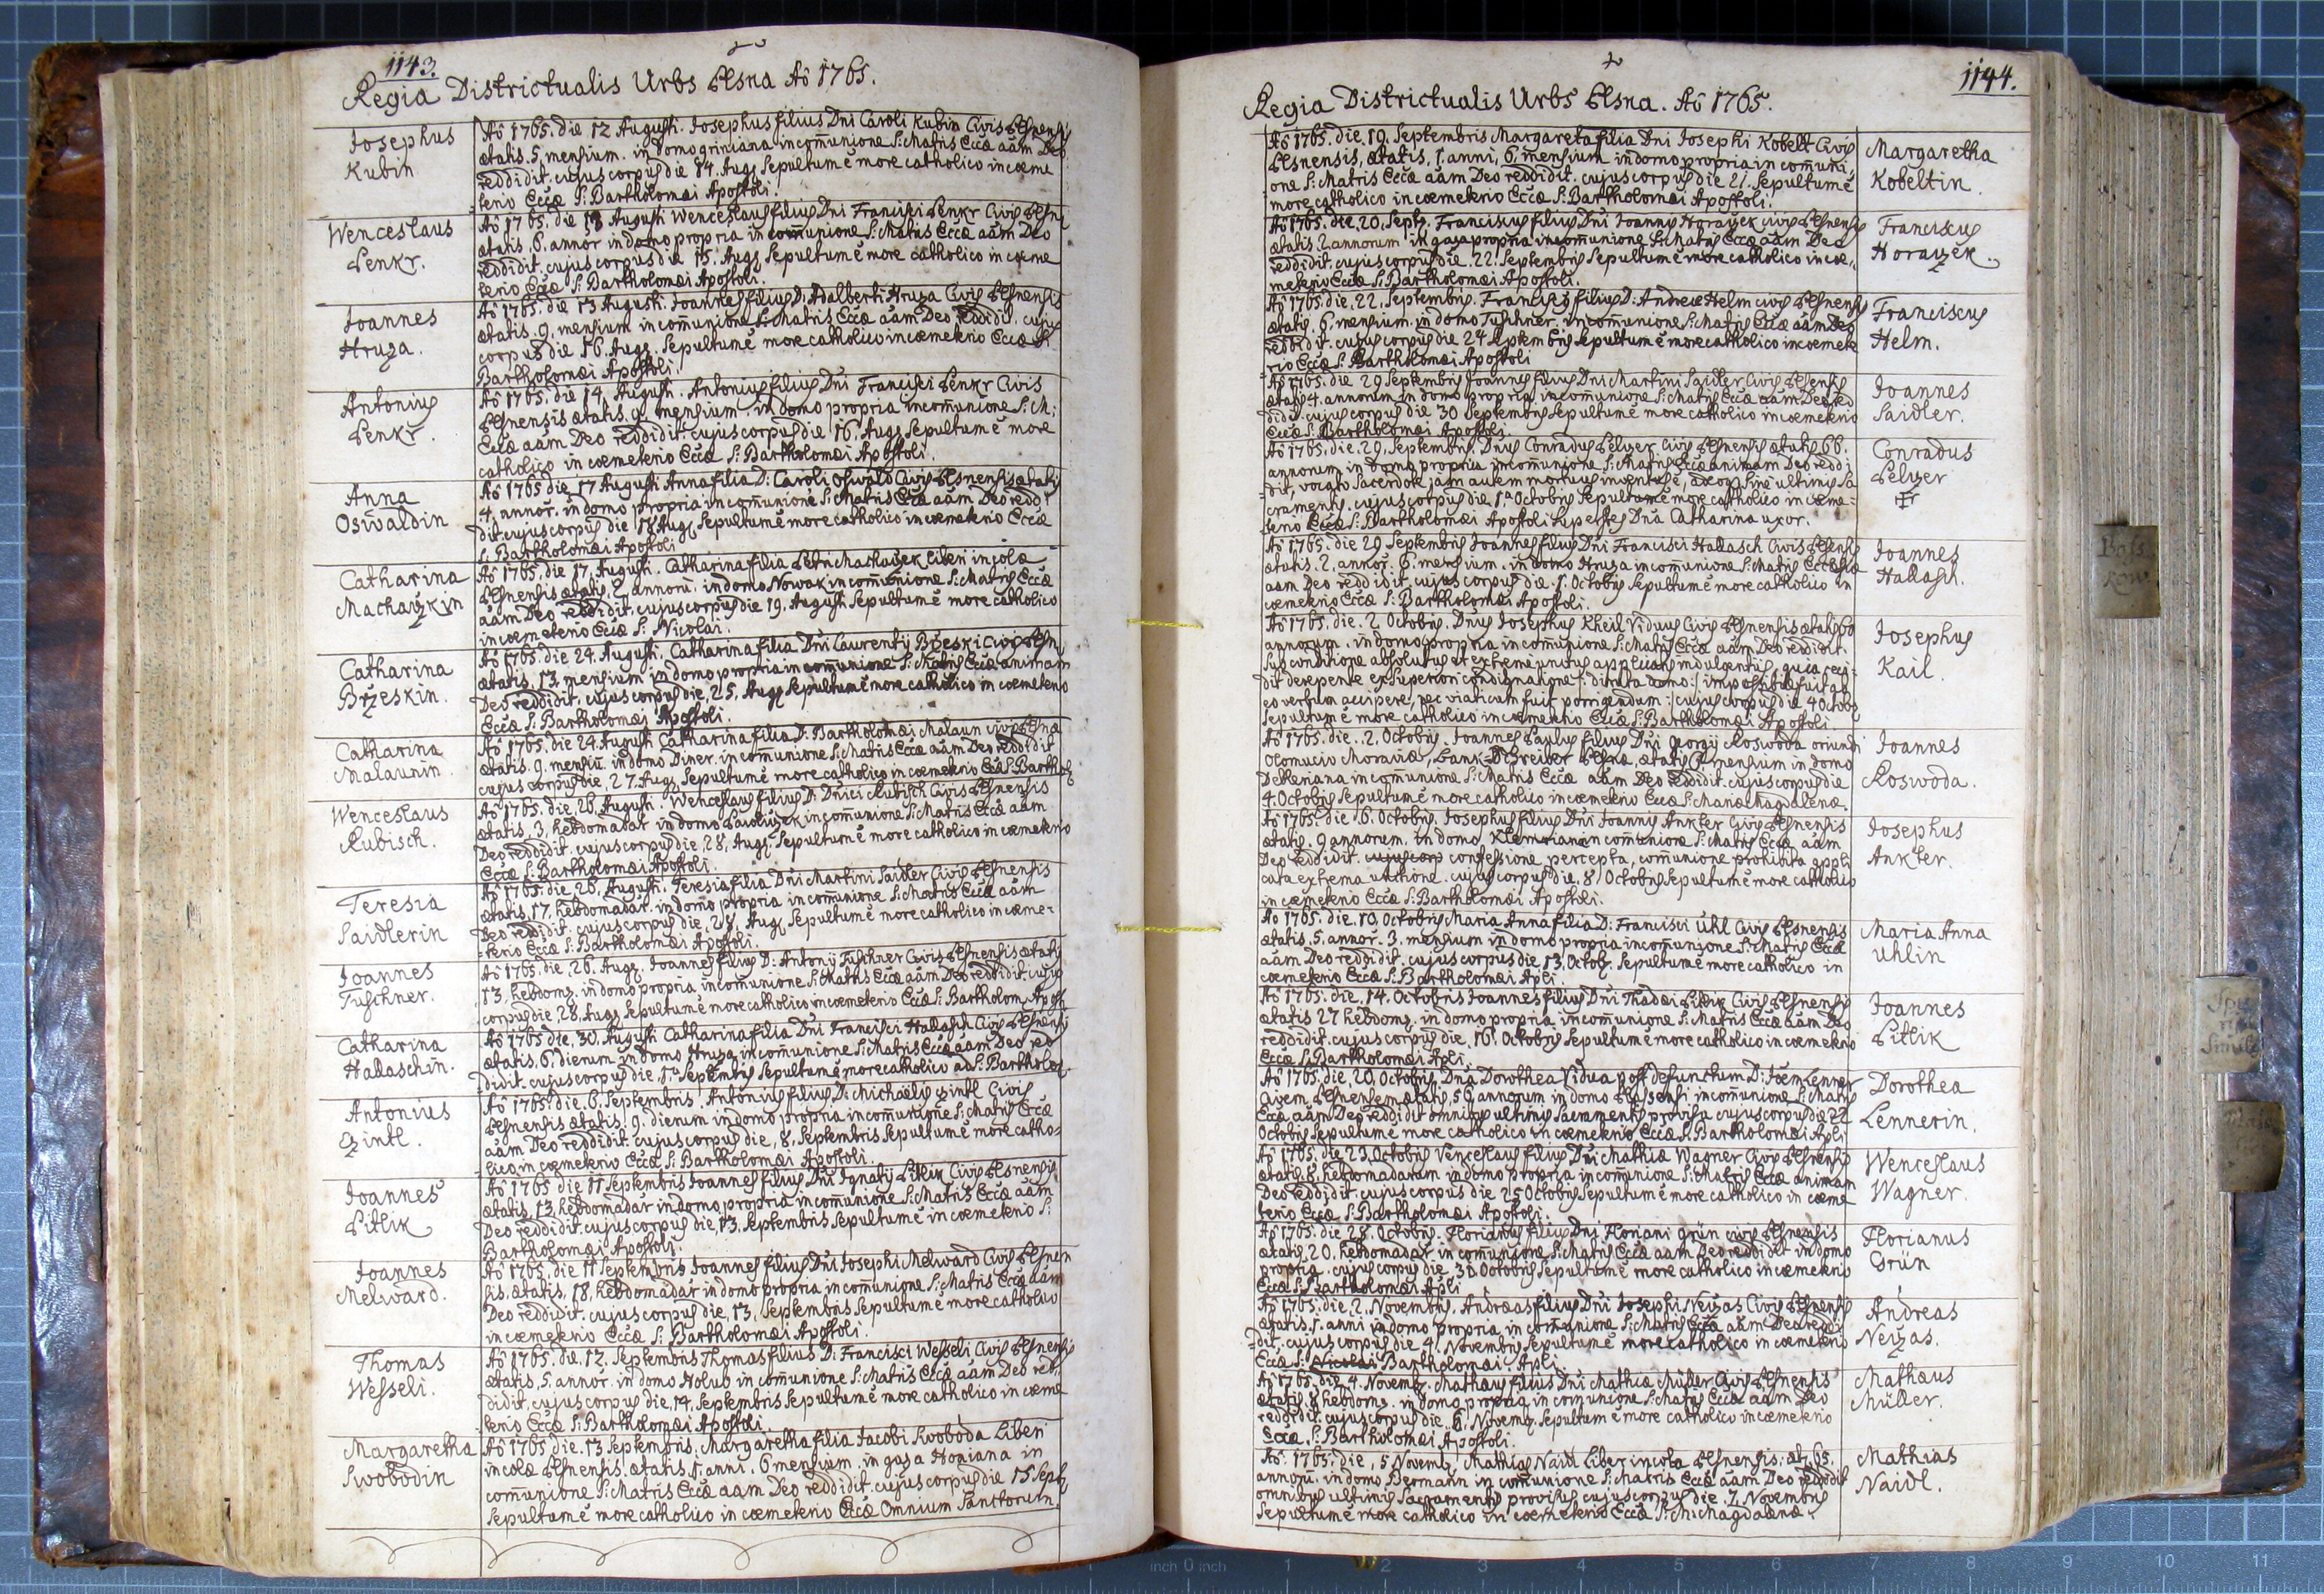 1143.
Regia Districtualis Urbs Plsna Aô 1765.
Josephus
Kubin
Aô 1765. die 12 Augusti. Josephus filius Dni Caroli Kubin Civis Plsnensis
ætatis. 5. mensium. in domo Griniana in com̄unione S: Matris Eccæ aām Deo
reddidit. cujus corpus die 14. Augs Sepultum ē more catholico in cœme
terio Eccæ S: Bartholomæi Apostoli.
Wenceslaus
Penkr.
Aô 1765. die 13 Augusti Wenceslaus filius Dni Francisci Penkr Civis Plsn
ætatis. 6. annor in domo propria in communione S: Matris Eccæ aām Deo
reddidit. cujus corpus die 15. Augs Sepultum ē more catholico in cœme
terio Eccæ S: Bartholomæi Apostoli.
Joannes
Hruza.
Aô 1765. die 13 Augusti. Joannes filius D: Adalberti Hruza Civis Plsnensis
ætatis. 9. mensium in com̄unione S: Matris Eccæ aām Deo reddidit. cujus
corpus die 16. Augs. Sepultum ē more catholico in cœmeterio Eccæ S.
Bartholomæi Apostoli.
Antonius
Penkr.
Aô 1765. die 14. Augusti. Antonius filius Dni Francisci Penkr Civis
Plsnensis ætatis. 9. mensium in domo propria in com̄unione S: M:
Eccæ aām Deo reddidit. cujus corpus die 16. Augs Sepultum ē more
catholico in cœmeterio Eccæ S: Bartholomæi Apostoli.
Anna
Oswaldin
Aô 1765 die 17 Augusti Anna filia D: Caroli Oswald Civis Plsnensis ætatis
4. annor. in domo propria in com̄unione S: Matris Eccæ aām Deo reddi
dit. cujus corpus die 18 Augs. Sepultum ē more catholico in cœmeterio Eccæ
S: Bartholomæi Apostoli
Catharina
Machaczkin
Aô 1765. die 17. Augusti. Catharina filia Petri liberi incolæ
Plsnensis ætatis. 2. annorū. in domo Nowak in com̄unione S: Matris Eccæ
aām Deo reddidit. cujus corpus die 19. Augusti Sepultum ē more catholico
in cœmeterio Eccæ S: Nicolai.
Catharina
Brzeskin.
Aô 1765. die 24. Augusti. Catharina filia Dni Laurentij Brzeski Civis Plsn
ætatis. 13. mensium in domo propria in communione S: Matris Eccæ animam
Deo reddidit. cujus corpus die, 25. Augs Sepultum ē more catholico in cœmeterio
Eccæ S: Bartholomæi Apostoli.
Catharina
Malaunin.
Aô 1765. die 24. Augusti Catharina filia D: Bartholomæi Malaun civis Plsnæ
ætatis. 9. mensiū. in domo Diner. in com̄unione S: Matris Eccæ aām Deo reddidit
cujus corpus die. 27. Augs. Sepultum ē more catholico in cœmeterio Eccæ S: Barthol
Wenceslaus
Rubisch.
Aô 1765. die. 26. Augusti. Wenceslaus filius D: Rubisch Civis Plsnensis
ætatis, 3, hebdomadar in domo in com̄unione S: Matris Eccæ aām
Deo reddidit. cujus corpus die, 28, Augs. Sepultum ē more catholico in cœmeterio
Eccæ S: Bartholomæi Apostoli.
Teresia
Saidlerin
Aô 1765. die, 26, Augusti. Teresia filia Dni Martini Saidler Civis Plsnensis
ætatis, 17, hebdomadar. in domo propria in com̄unione S: Matris Eccæ aām
Deo reddidit. cujus corpus die, 28, Aug. Sepultum ē more catholico in cœme-
terio Eccæ S: Bartholomæi Apostoli.
Joannes
Tuschner.
Aô 1765. die. 26. Augs. Joannes filius D: Antonij Tuschner Civis Plsnensis ætatis
13, hebdoms. in domo propria in com̄unione S: Matris Eccæ aām Deo reddidit. cujus
corpus die. 28. Augs Sepultum ē more catholico in cœmeterio Eccæ S: Bartholom. Apost
Catharina
Hallaschin.
Aô 1765 die. 30. Augusti Catharina filia Dni Francisci Hallasch Civis Plsnensis
ætatis. 6. dierum in domo Hruza in com̄unione S: Matris Eccæ aām Deo red
didit. cujus corpus die, 1a Septembris Sepultum ē more catholico ad S: Bartholom
Antonius
Czintl.
Aô 1765. die. 6. Septembris. Antonius filius D: Michaëlis Czintl Civis
Plsnensis ætatis. 9. dierum in domo propria in com̄unione S: Matris Eccæ
aām Deo reddidit. cujus corpus die, 8, Septembris Sepultum ē more catho-
lico in cœmeterio Eccæ S: Bartholomæi Apostoli.
Joannes
Pitlik
Aô 1765 die 11 Septembris Joannes filius Dni Ignatij Pitlik Civis Plsnensis
ætatis, 13, hebdomadar in domo propria in com̄unione S: Matris Eccæ aām
Deo reddidit. cujus corpus die, 13, Septembris Sepultum ē in cœmeterio S:
Bartholomæi Apostoli.
Joannes
Melward.
Aô 1765. die 11 Septembris Joannes filius Dni Josephi Melward Civis Plsnen
sis. ætatis, 18, hebdomadar in domo propria, in com̄unione S: Matris Eccæ aām
Deo reddidit. cujus corpus die, 13, Septembris Sepultum ē more catholico
in cœmeterio Eccæ S: Bartholomæi Apostoli.
Thomas
Wesseli.
Aô 1765. die. 12. Septembris Thomas filius D: Francisci Wesseli Civis Plsnensis
ætatis, 5. annor. in domo Holub in com̄unione S: Matris Eccæ aām Deo red
didit. cujus corpus die, 14, Septembris Sepultum ē more catholico in cœme
terio Eccæ S: Bartholomæi Apostoli.
Margaretha
Swobodin
Aô 1765 die. 13 Septembris. Margaretha filia Jacobi Swoboda Liberi
incolæ Plsnensis. ætatis, 1, anni. 6 mensium. in gasa in
com̄unione S: Matris Eccæ aām Deo reddidit. cujus corpus die 15 Septs
Sepultum ē more catholico in cœmeterio Eccæ Omnium Sanctorum.
1144.
Regia Districtualis Urbs Plsna. Aô 1765.
Aô 1765. die. 19. Septembris Margareta filia Dni Josephi Kobelt Civis
Plsnensis, ætatis, 1. anni, 6, mensium in domo propria in comuni-
one S: Matris Eccæ aām Deo reddidit. cujus corpus die 21. Sepultum ē
more catholico in cœmeterio Eccæ S: Bartholomæi Apostoli.
Margaretha
Kobeltin.
Aô 1765. die. 20, Septs. Franciscus filius Dni Joannis Horaczek civis Plsnensis
ætatis. 2. annorum in gasa propria in com̄unione S: Matris Eccæ aām Deo
reddidit. cujus corpus die. 22. Septembris Sepultum ē more catholico in cœ-
meterio Eccæ S: Bartholomæi Apostoli.
Franciscus
Horaczek.
Aô 1765. die, 22, Septembris. Franciscus filius D: Andreæ Helm civis Plsnensis
ætatis. 6. mensium. in domo Tuschner. in com̄unione S: Matris Eccæ aām Deo
reddidit. cujus corpus die 24 Septembris Sepultum ē more catholico in cœmete
rio Eccæ S: Bartholomæi Apostoli
Franciscus
Helm.
Aô 1765. die 29 Septembris Joannes filius Dni Martini Saidler Civis Plsnensis
ætatis 4. annorum in domo propria in com̄unione S: Matris Eccæ aām Deo red
didit. cujus corpus die 30 Septembris Sepultum ē more catholico in cœmeterio
Eccæ S: Bartholomæi Apostoli.
Joannes
Saidler.
Aô 1765. die. 29. Septembris. Dnus Conradus Pelzer Civis Plsnensis ætatis 66.
annorum in domo propria in com̄unione S: Matris Eccæ animam Deo reddi
dit, vocato Sacerdote, jam autem mortuus inventus ē, adeoq sine ultimis Sa
cramentis, cujus corpus die, 1a Octobris Sepultum ē more catholico in cœme=
terio Eccæ S: Bartholomæi Apostoli Superstes Dna Catharina uxor.
Conradus
Pelzer
Aô 1765. die 29 Septembris Joannes filius Dni Francisci Hallasch Civis Plsnensis
ætatis. 2. annor. 6. mensium. in domo Hruza in com̄unione S: Matris Ecclesiæ
aam Deo reddidit. cujus corpus die. 1. Octobris Sepultum ē more catholico in
cœmeterio Eccæ S: Bartholomæi Apostoli.
Joannes
Hallasch.
Aô 1765. die. 2 Octobris. Dnus Josephus Kheil Viduus Civis Plsnensis ætatis 60
annorum. in domo propria in com̄unione S: Matris Eccæ aām Deo reddidit.
Sub conditione absolutus et extreme unctus applicatis indulgentiis, quia ceci-
dit derepente ex superiori condignatione impossibile fuit ab
eo verbum accipere, nec viaticum fuit porrigendum :/ cujus corpus die 4 Octobr
Sepultum ē more catholico in cœmeterio Eccæ S: Bartholomæi Apostoli.
Josephus
Kail.
Aô 1765. die. 2. Octobris. Joannes Paulus filius Dni Georgij Roswoda oriundi
Olomucio Moraviæ, Plsnæ, ætatis 6 mensium in domo
Dekeriana in com̄unione S: Matris Eccæ aām Deo reddidit. cujus corpus die
4. Octobris Sepultum ē more catholico in cœmeterio Eccæ S: Mariæ Magdalenæ.
Joannes
Roswoda.
Aô 1765. die. 6. Octobris. Josephus filius Dni Joannis Ankter Civis Plsnensis
ætatis. 9 annorum. in domo Klemtiana in com̄unione S: Matris Eccæ aām
Deo reddidit. cujus corp confessione percepta, comunione prohibita appli
cata extrema unctione. cujus corpus die. 8, Octobris Sepultum ē more catholico
in cœmeterio Eccæ S: Bartholomæi Apostoli.
Josephus
Ankter.
Aô 1765. die. 10. Octobris Maria Anna filia D: Francisci Uhl Civis Plsnensis
ætatis. 5. annor. 3. mensium in domo propria in com̄unione S: Matris Eccæ
aām Deo reddidit. cujus corpus die 13. Octob. Sepultum ē more catholico in
cœmeterio Eccæ S: Bartholomæi Apli.
Maria Anna
Uhlin
Aô 1765. die. 14. Octobris Joannes filius Dni Thadæi Pitlik Civis Plsnensis
ætatis 27 hebdoms. in domo propria in com̄unione S: Matris Eccæ aām Deo
reddidit. cujus corpus die, 16, Octobris Sepultum ē more catholico in cœmeterio
Eccæ S: Bartholomæi Apli.
Joannes
Pitlik
Aô 1765. die, 20, Octobris, Dna Dorothea Vidua post defunctum D: Joēm Lenner
Civem Plsnensem ætatis, 50, annorum in domo in com̄unione S: Matris
Eccæ aām Deo reddidit omnibus ultimis Sacramentis provisa cujus corpus die 22
Octobris Sepultum ē more catholico in cœmeterio Eccæ S: Bartholomæi Apli
Dorothea
Lennerin.
Aô 1765, die. 23. Octobris Venceslaus filius Dni Mathiæ Wagner Civis Plsnensis
ætatis. 8, hebdomadarum in domo propria in com̄unione S: Matris Eccæ animam
Deo reddidit. cujus corpus die 25 Octobris Sepultum ē more catholico in cœme
terio Eccæ S: Bartholomæi Apostoli.
Wenceslaus
Wagner.
Aô 1765. die 28. Octobris. Florianus filius Dni Floriani Grün civis Plsnensis
ætatis, 20, hebdomadar in comunione S: Matris Eccæ aām Deo reddidit in domo
propria. cujus corpus die 30. Octobris Sepultum ē more catholico in cœmeterio
Eccæ S: Bartholomæi Apli
Florianus
Grün
Aô 1765. die, 2. Novembris, Andræas filius Dni Josephi Neizas Civis Plsnensis
ætatis. 1. anni in domo propria, in com̄unione S: Matris Eccæ aām Deo reddi
dit. cujus corpus die 4. Novembris Sepultum ē more catholico in cœmeterio
Eccæ S: Nicolai Bartholomæi Apli.
Andreas
Neizas.
Aô 1765. die, 4. Novembs. Mathæus filius Dni Mathiæ Müller Civis Plsnensis
ætatis 8 hebdoms. in domo propria in com̄unione S: Matris Eccæ aām Deo
reddidit. cujus corpus die. 6. Novemb. Sepultum ē more catholico in cœmeterio
Eccæ. S: Bartholomæi Apostoli.
Mathæus
Müller.
Aô: 1765. die, 5 Novembs, Mathias Naidl Liber incola Plsnensis. æt. 65.
annorū. in domo Bermann in com̄unione S: Matris Eccæ aām Deo reddidit
omnibus ultimis Sacramentis provisus cujus corpus die. 7. Novembris
Sepultum ē more catholico in cœmeterio Eccæ S: M: Magdalenæ.
Mathias
Naidl.
inch 0 inch 1 2 3 4 5 6 7 8 9 10 11